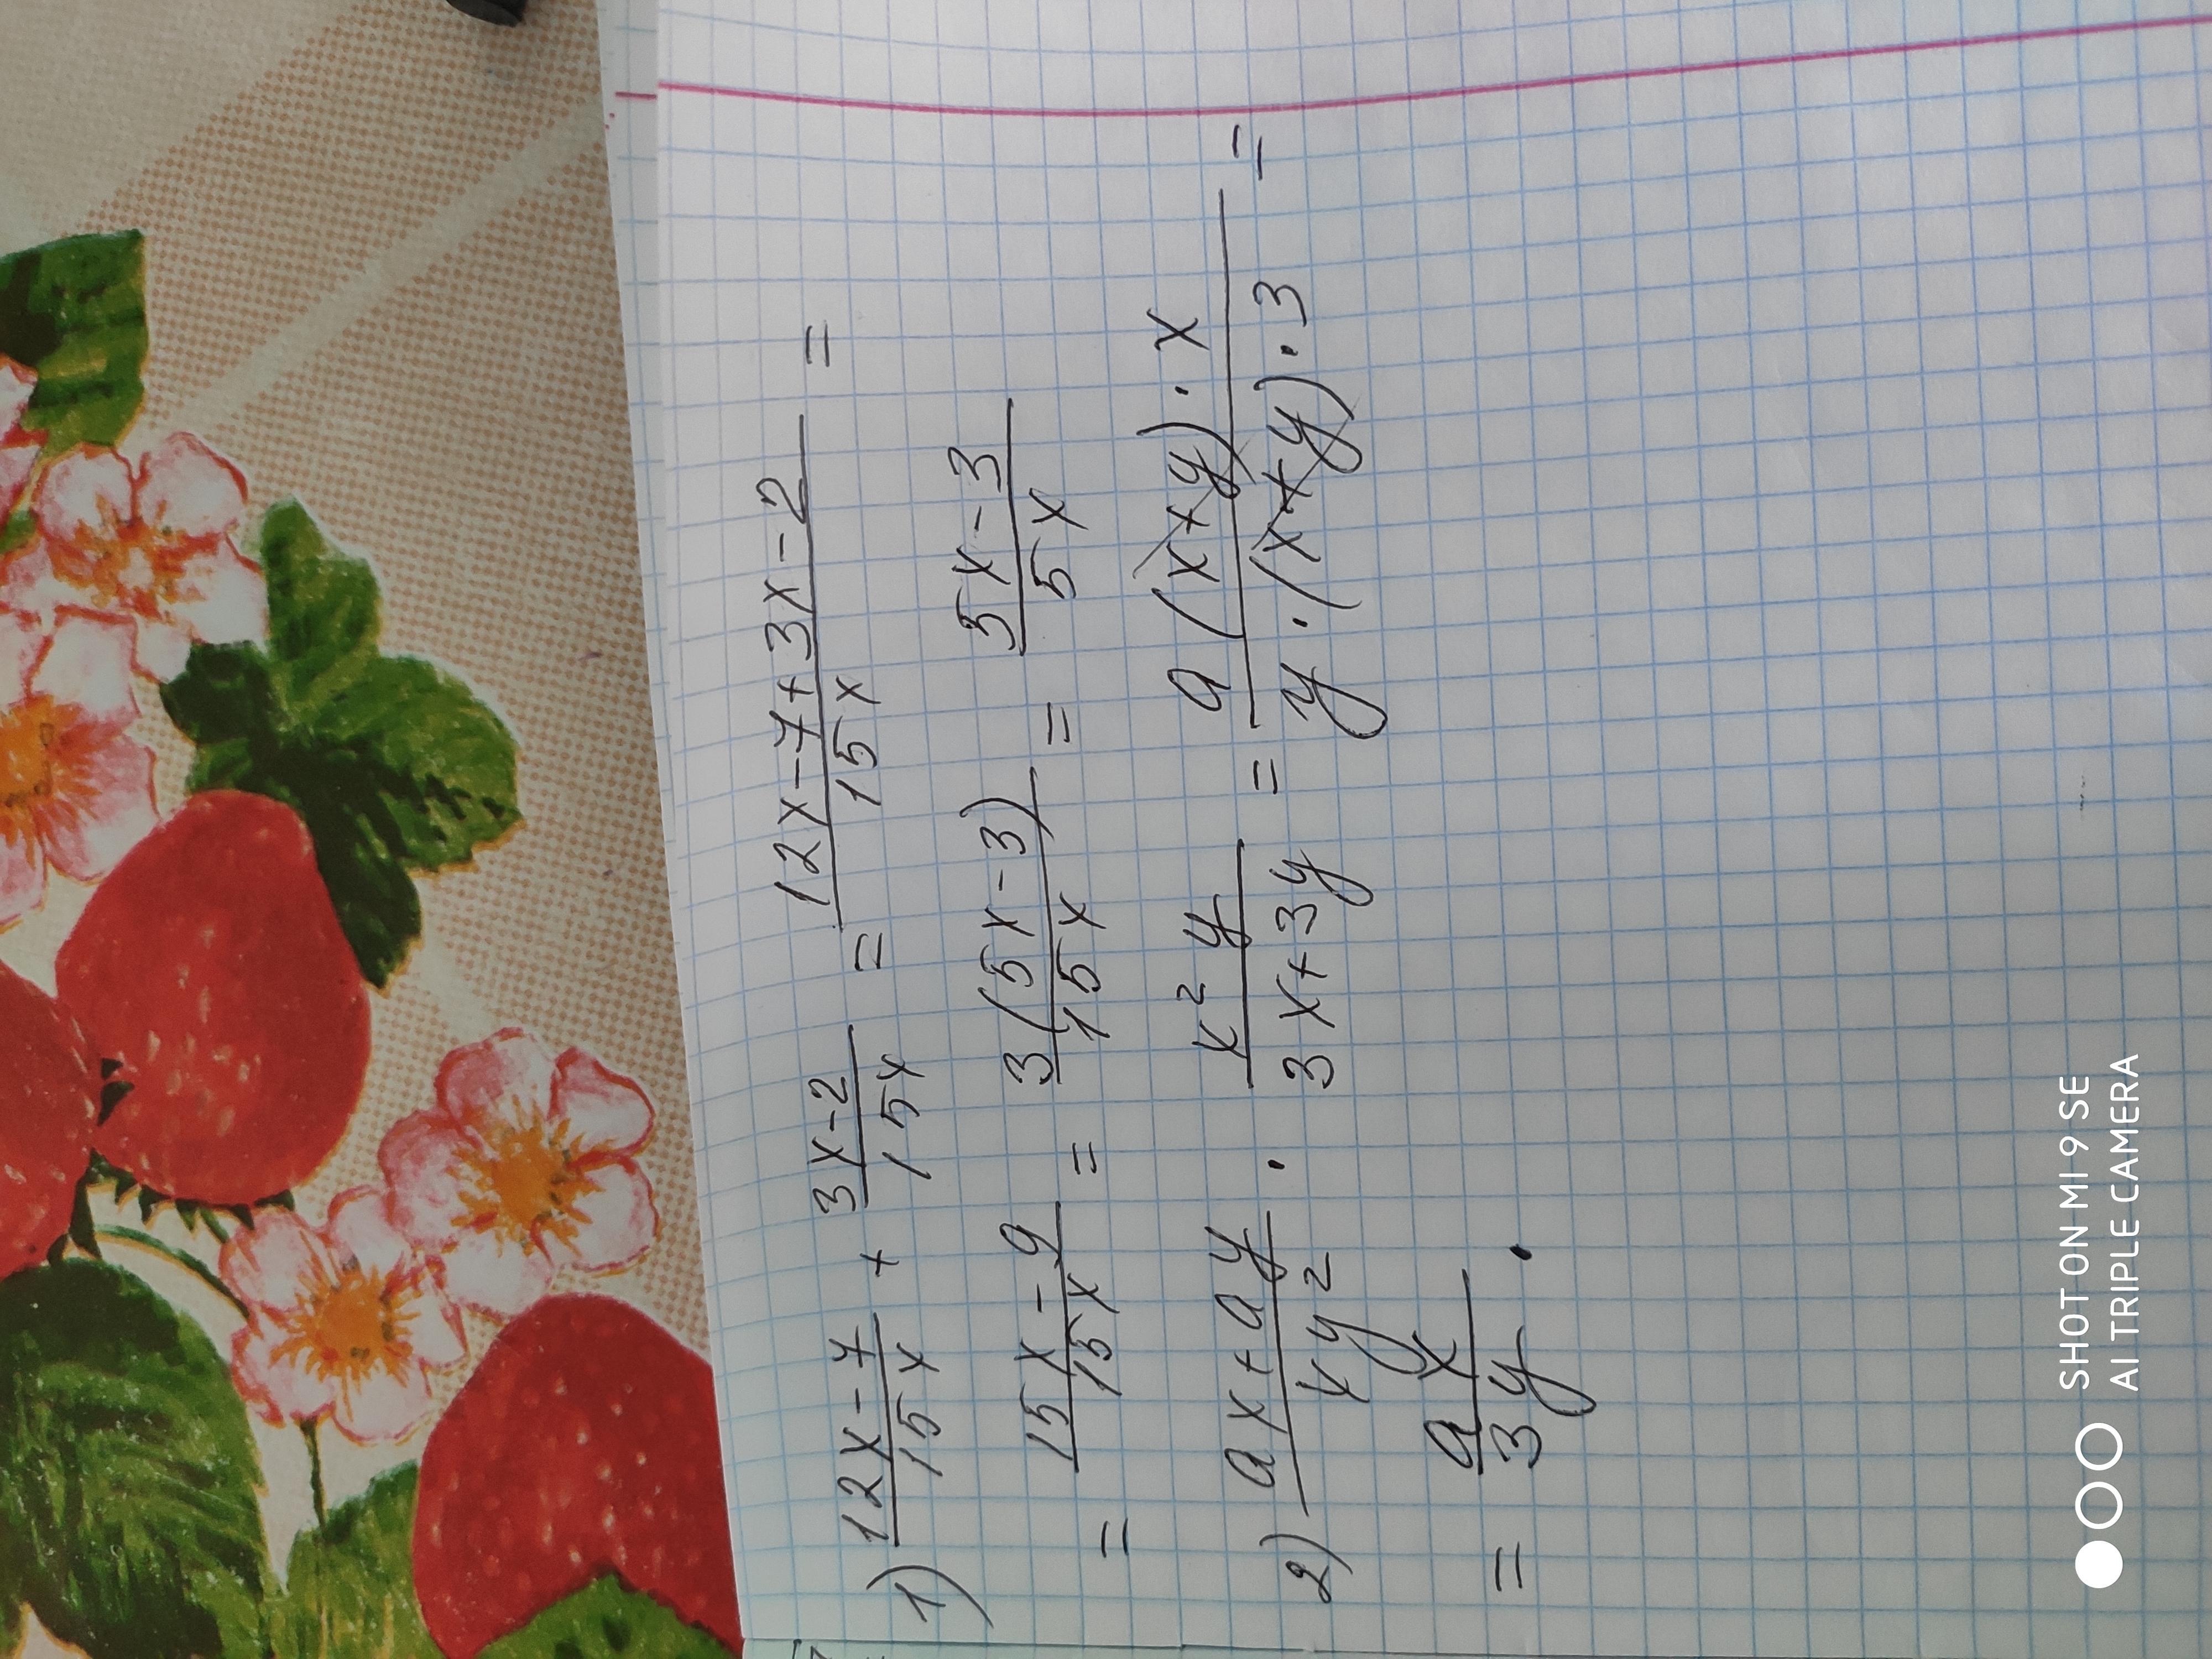 1) (12x-7)/(15x) + (3x-2)/(15x) = (12x-7+3x-2)/(15x) =
= (15x-9)/(15x) = (3(5x-3))/(15x) = (5x-3)/(5x)
2) (ax+ay)/(xy²) · (x²y)/(3x+3y) = (a(x+y)·x)/(y·(x+y)·3) =
= (ax)/(3y) .
SHOT ON MI 9 SE
AI TRIPLE CAMERA